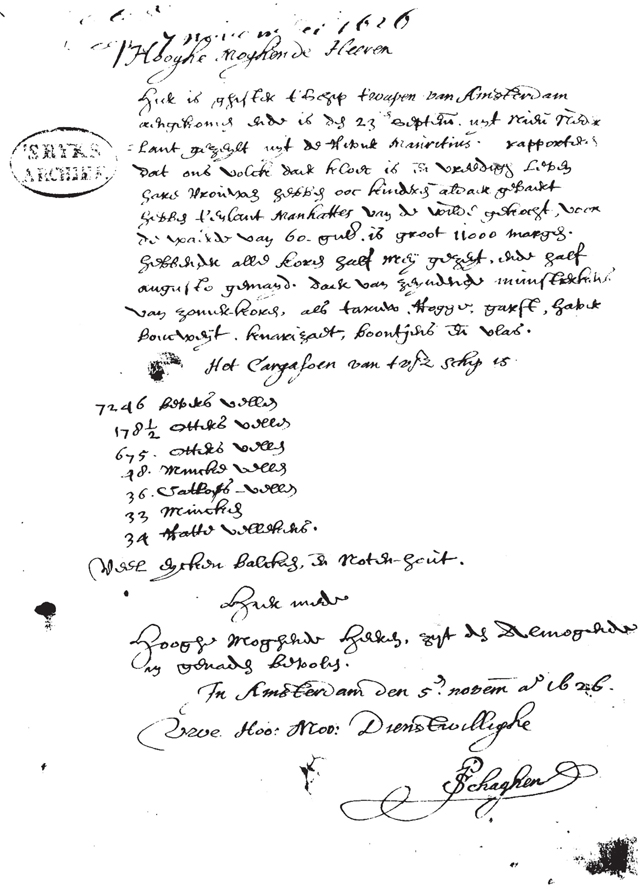 7 November 1626
Hooghe Moghende Heeren
Hier is ghister t'Schip t'wapen van Amsterdam
aengekomen ende is den 23en septem. uyt Nieu Neder
'SRYKS
ARCHIEF
Lant gezeylt uyt de rivier Mauritius. rapporteren
dat ons volck daer kloec is en vreedigh leven
hare Vrouwen hebben ooc kinderen aldaer gebaert
hebben t'eylant Manhattes van de wilde gekocht, voor
de waerde van 60. guld. is groot 11000 morgen.
hebbende alle koren half Mey gezeyt, ende half
augusto gemayd. daer van zeynde munsterkens
van zomerkoren, als taruw, Rogge, garst, haver
boucweyt, knarizaet, boontjens en vlas.
Het Cargasoen van t'vsz schip is
7246 bevers vellen
178½ otters vellen
675. otters vellen
48. Mincke vellen
36. Catloes vellen
33 Mincken
34 Ratte vellekens.
Veel eycken balcken, en Noten-hout.
Hier mede
Hooghe Moghende Heeren, zyt den Almogende
in genaden bevolen.
In Amsterdam den 5en novem ao 1626.
Uwe Hoo: Moo: Dienstwillighe
P Schaghen